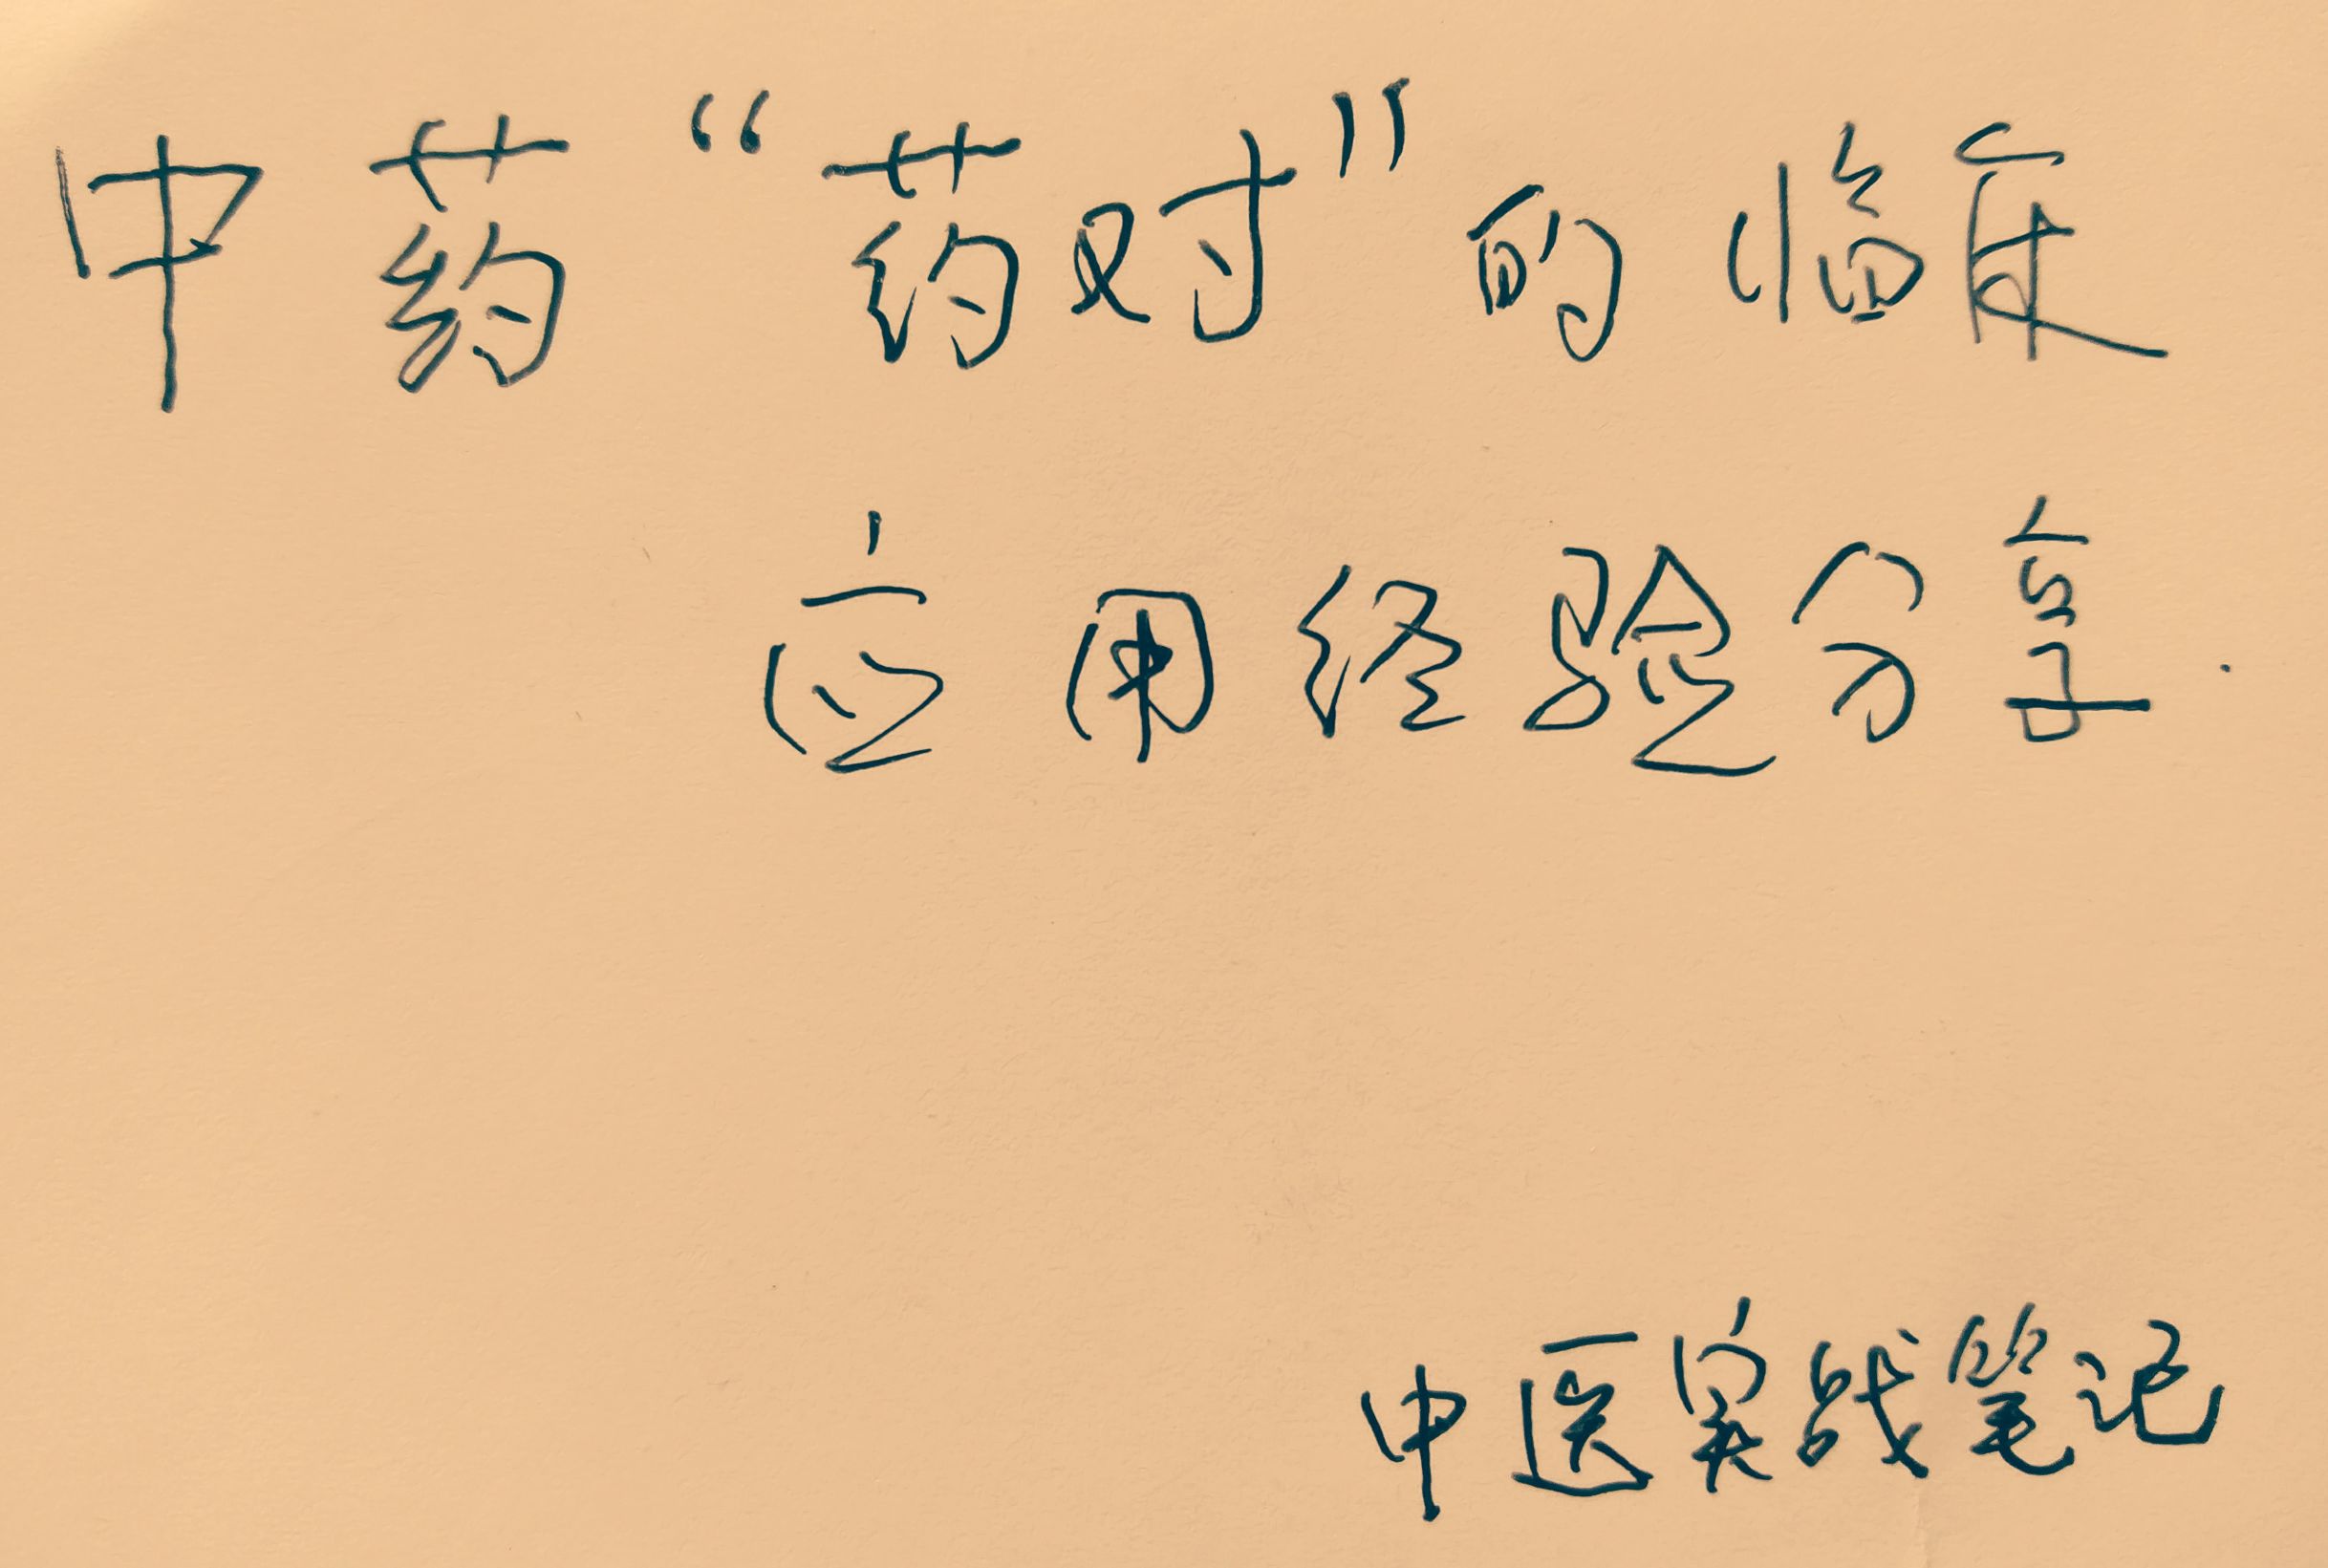 中药“药对”的临床
应用经验分享
中医实战笔记